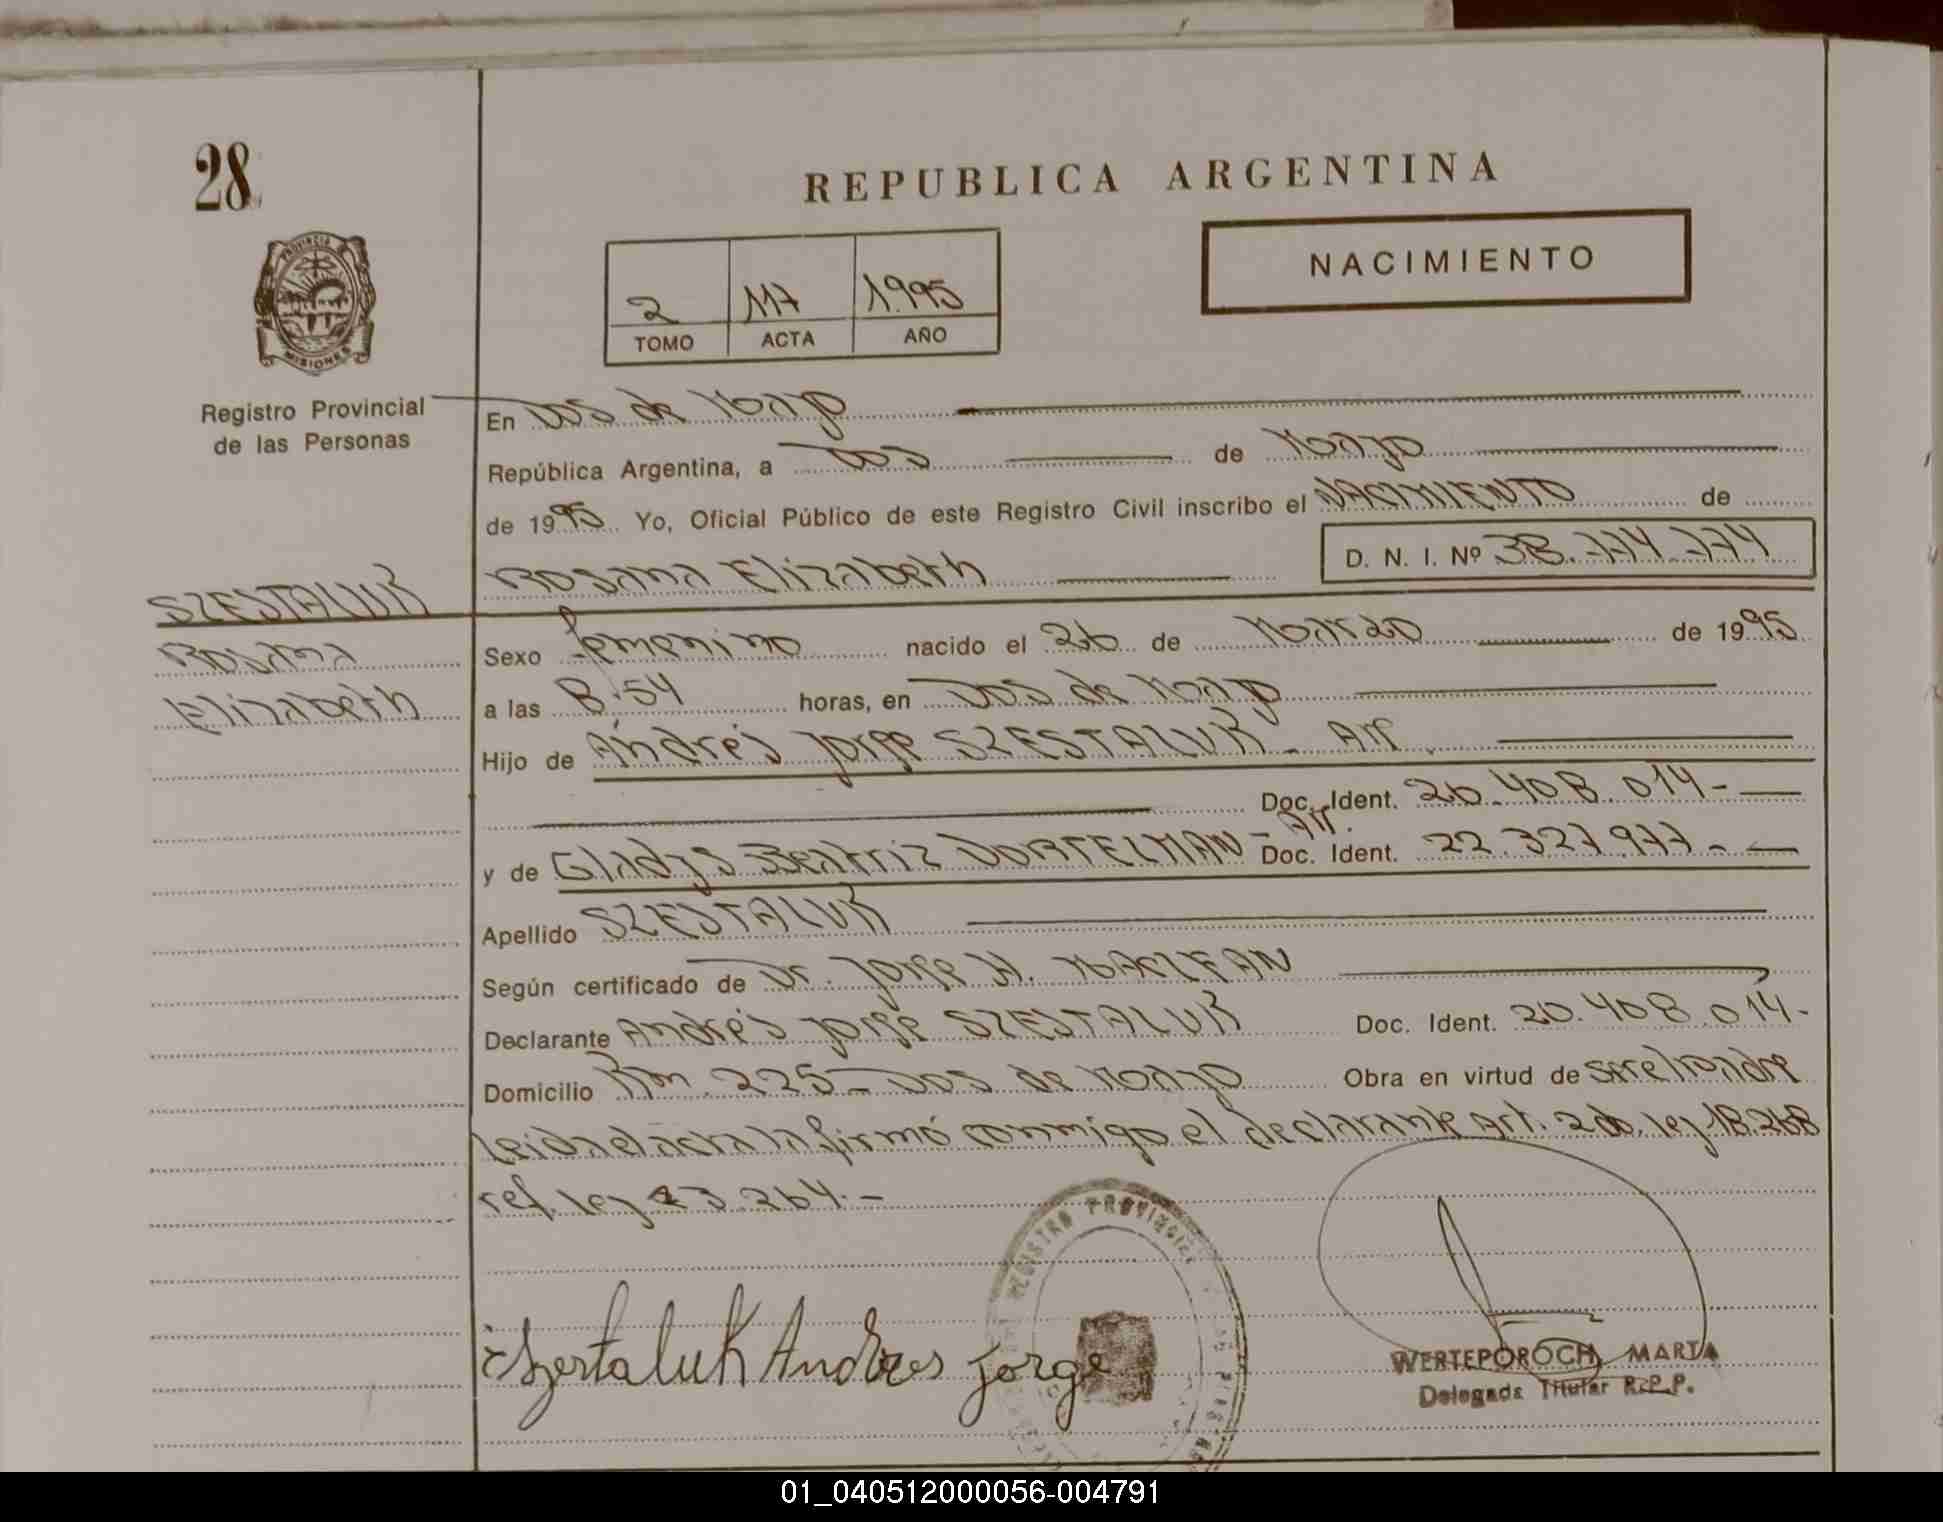 28
REPUBLICA ARGENTINA
NACIMIENTO
2 117 1.995
TOMO ACTA AÑO
PROVINCIA
MISIONES
Registro Provincial
de las Personas
En Dos de Mayo
República Argentina, a Dos de Mayo
de 1995 Yo, Oficial Público de este Registro Civil inscribo el NACIMIENTO de
Rosana Elizabeth D. N. I. Nº 38.774.774
SZESTALUK
Rosana
Elizabeth
Sexo femenino nacido el 26 de Marzo de 1995
a las 8.54 horas, en Dos de Mayo
Hijo de Andrés Jorge SZESTALUK - Arg.
Doc. Ident. 20.408.014-
y de Gladys Beatriz - Arg. Doc. Ident. 22.327.977-
Apellido SZESTALUK
Según certificado de Dr. Jorge H. MACLEAN
Declarante Andrés Jorge SZESTALUK Doc. Ident. 20.408.014-
Domicilio Km. 225 - Dos de Mayo Obra en virtud de ser el padre
Leida el acta la firmó conmigo el declarante Art. 2do. ley 18.248
ref. ley 23.264.-
Szestaluk Andres Jorge
REGISTRO PROVINCIAL
WERTEPOROCH MARTA
Delegada Titular R.P.P.
01_040512000056-004791